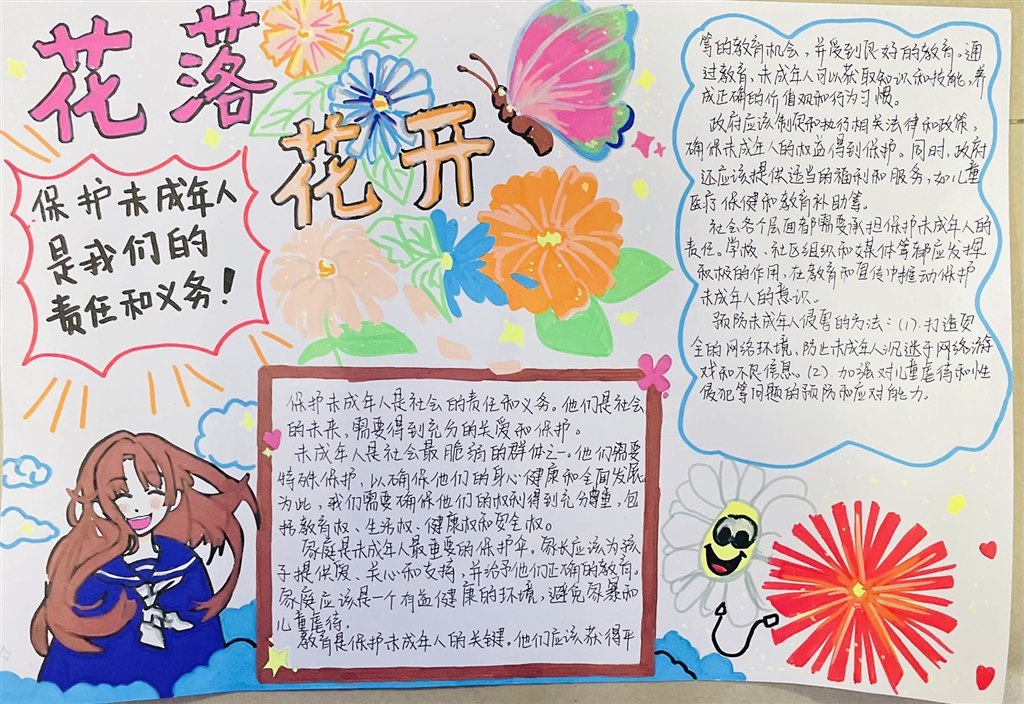 花落
花开
保护未成年人
是我们的
责任和义务！
保护未成年人是社会的责任和义务。他们是社会
的未来，需要得到充分的关爱和保护。
未成年人是社会最脆弱的群体之一。他们需要
特殊保护，以确保他们的身心健康和全面发展
为此，我们需要确保他们的权利得到充分尊重，包
括教育权、生活权、健康权和安全权。
家庭是未成年人最重要的保护伞。家长应该为孩
子提供爱、关心和支持，并给予他们正确的教育。
家庭应该是一个有益健康的环境，避免家暴和
儿童虐待。
教育是保护未成年人的关键。他们应该获得平
等的教育机会，并受到良好的教育。通
过教育，未成年人可以获取知识和技能，养
成正确的价值观和行为习惯。
政府应该制定和执行相关法律和政策，
确保未成年人的权益得到保护。同时，政府
还应该提供适当的福利和服务，如儿童
医疗保健和教育补助等。
社会各个层面都需要承担保护未成年人的
责任。学校、社区组织和媒体等都应发挥
积极的作用，在教育和宣传中推动保护
未成年人的意识。
预防未成年人侵害的方法：(1).打造安
全的网络环境、防止未成年人沉迷于网络游
戏和不良信息。(2).加强对儿童虐待和性
侵犯等问题的预防和应对能力。